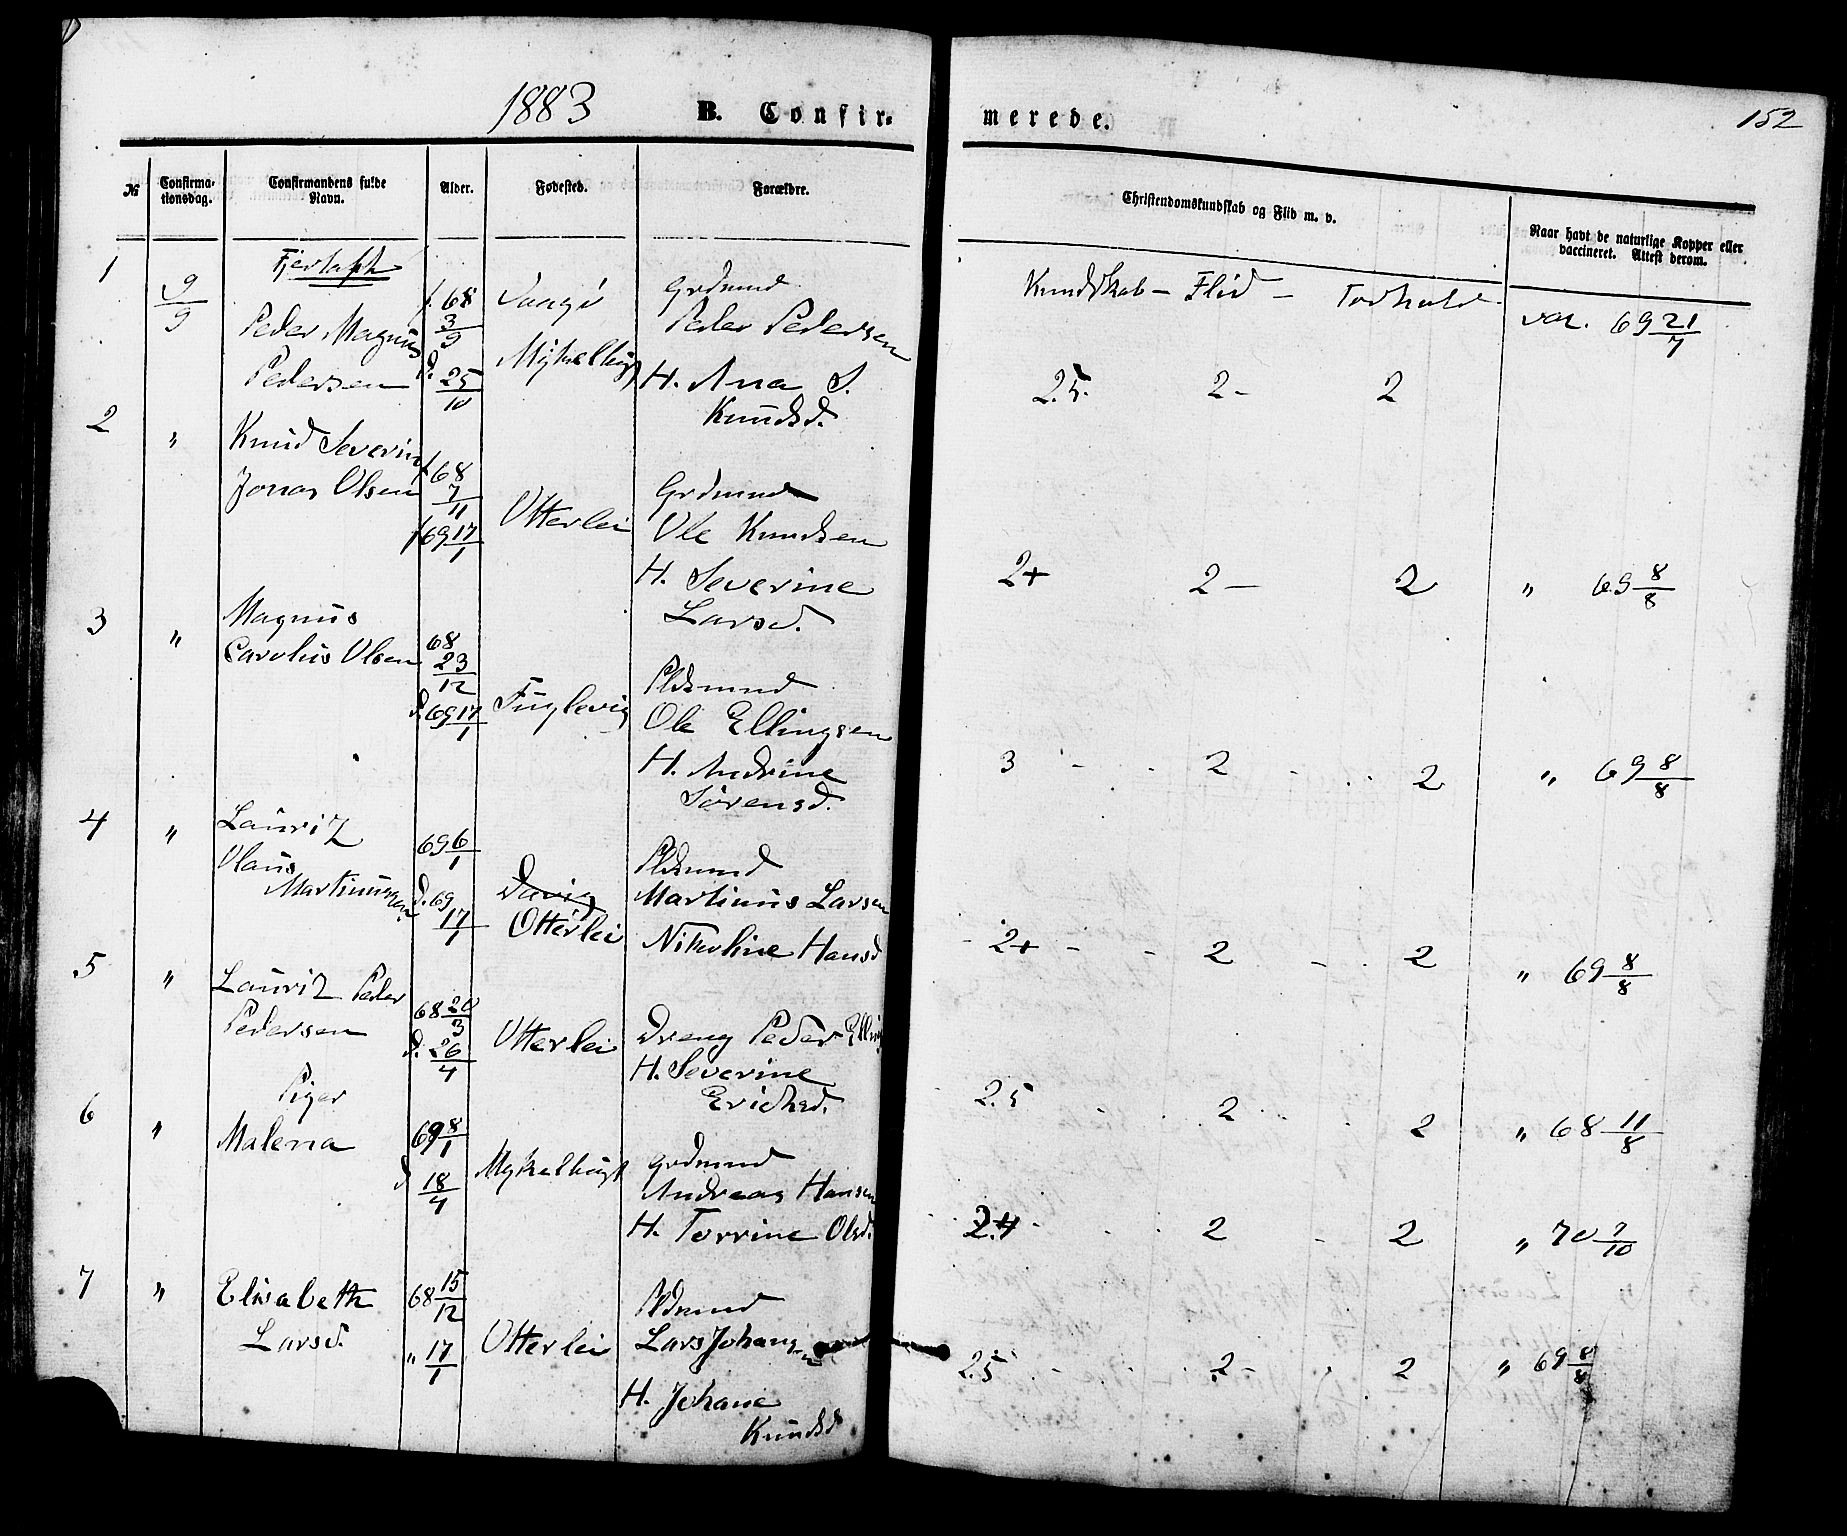 1883 B. Confir-
merede. 152
№ Confirma-tionsdag. Confirmandens fulde Navn. Alder. Fødested. Forældre.
Christendomskundskab og Flid m. v. Naar havt de naturlige Kopper eller vaccineret. Attest derom.
1 9/9 Peder Magnus Pedersen f. 68 3/9 d. 25/10 Mykelbúst Grdmnd Peder Pedersen H. Ana S. Knúdsd.
Kundskab – Flid – Forhold
2.5. 2 – 2 vac. 69 21/7
2 " Knúd Severin Jonas Olsen f. 68 7/11 69 17/1 Otterlei Grdmnd Ole Knudsen H. Severine Larsd.
2+ 2 – 2 " 69 8/8
3 " Magnús Carolús Olsen 68 23/12 d. 69 17/1 Fúglevig Pldsmnd Ole Ellingsen H. Andrine Sørensd.
3 - 2 - 2 " 69 8/8
4 " Laúritz Olaús Martinússen 69 6/1 d. 69 17/1 Otterlei Pldsmnd Martinús Larsen Nikoline Hansd
2+ - 2 - 2 " 69 8/8
5 " Laúritz Peder Pedersen 68 20/3 d. 26/4 Otterlei Dreng Peder H. Severine Erichsd.
2.5 2 2 " 68 11/8
Piger
6 " Malena 69 8/1 d 18/4 Mykelbúst Grdmnd Andreas Hansen H. Torrine Olsd.
2 - 2 " 70 7/10
7 " Elisabeth Larsd. 68 15/12 " 17/1 Otterlei Pldsmnd Lars Johansen H. Johane Knúdsd
2.5 - 2 – 2 " 69 8/8